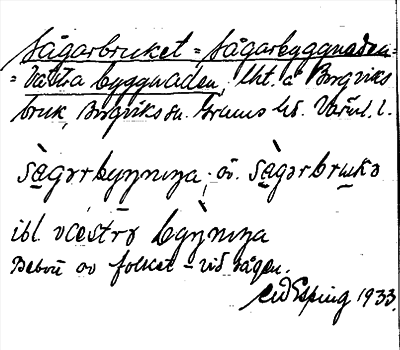 Sågarbruket = Sågarbyggnaden =
= Västra byggnaden, lht. å Borgviks
bruk, Borgviks sn. Grums hd. Värml. l.
sàgərbyŋniŋa; äv. sàgərbrukə
ibl. væ̀strə bỳgniŋa
Bebott av folket – vid sågen.
Esping 1933.